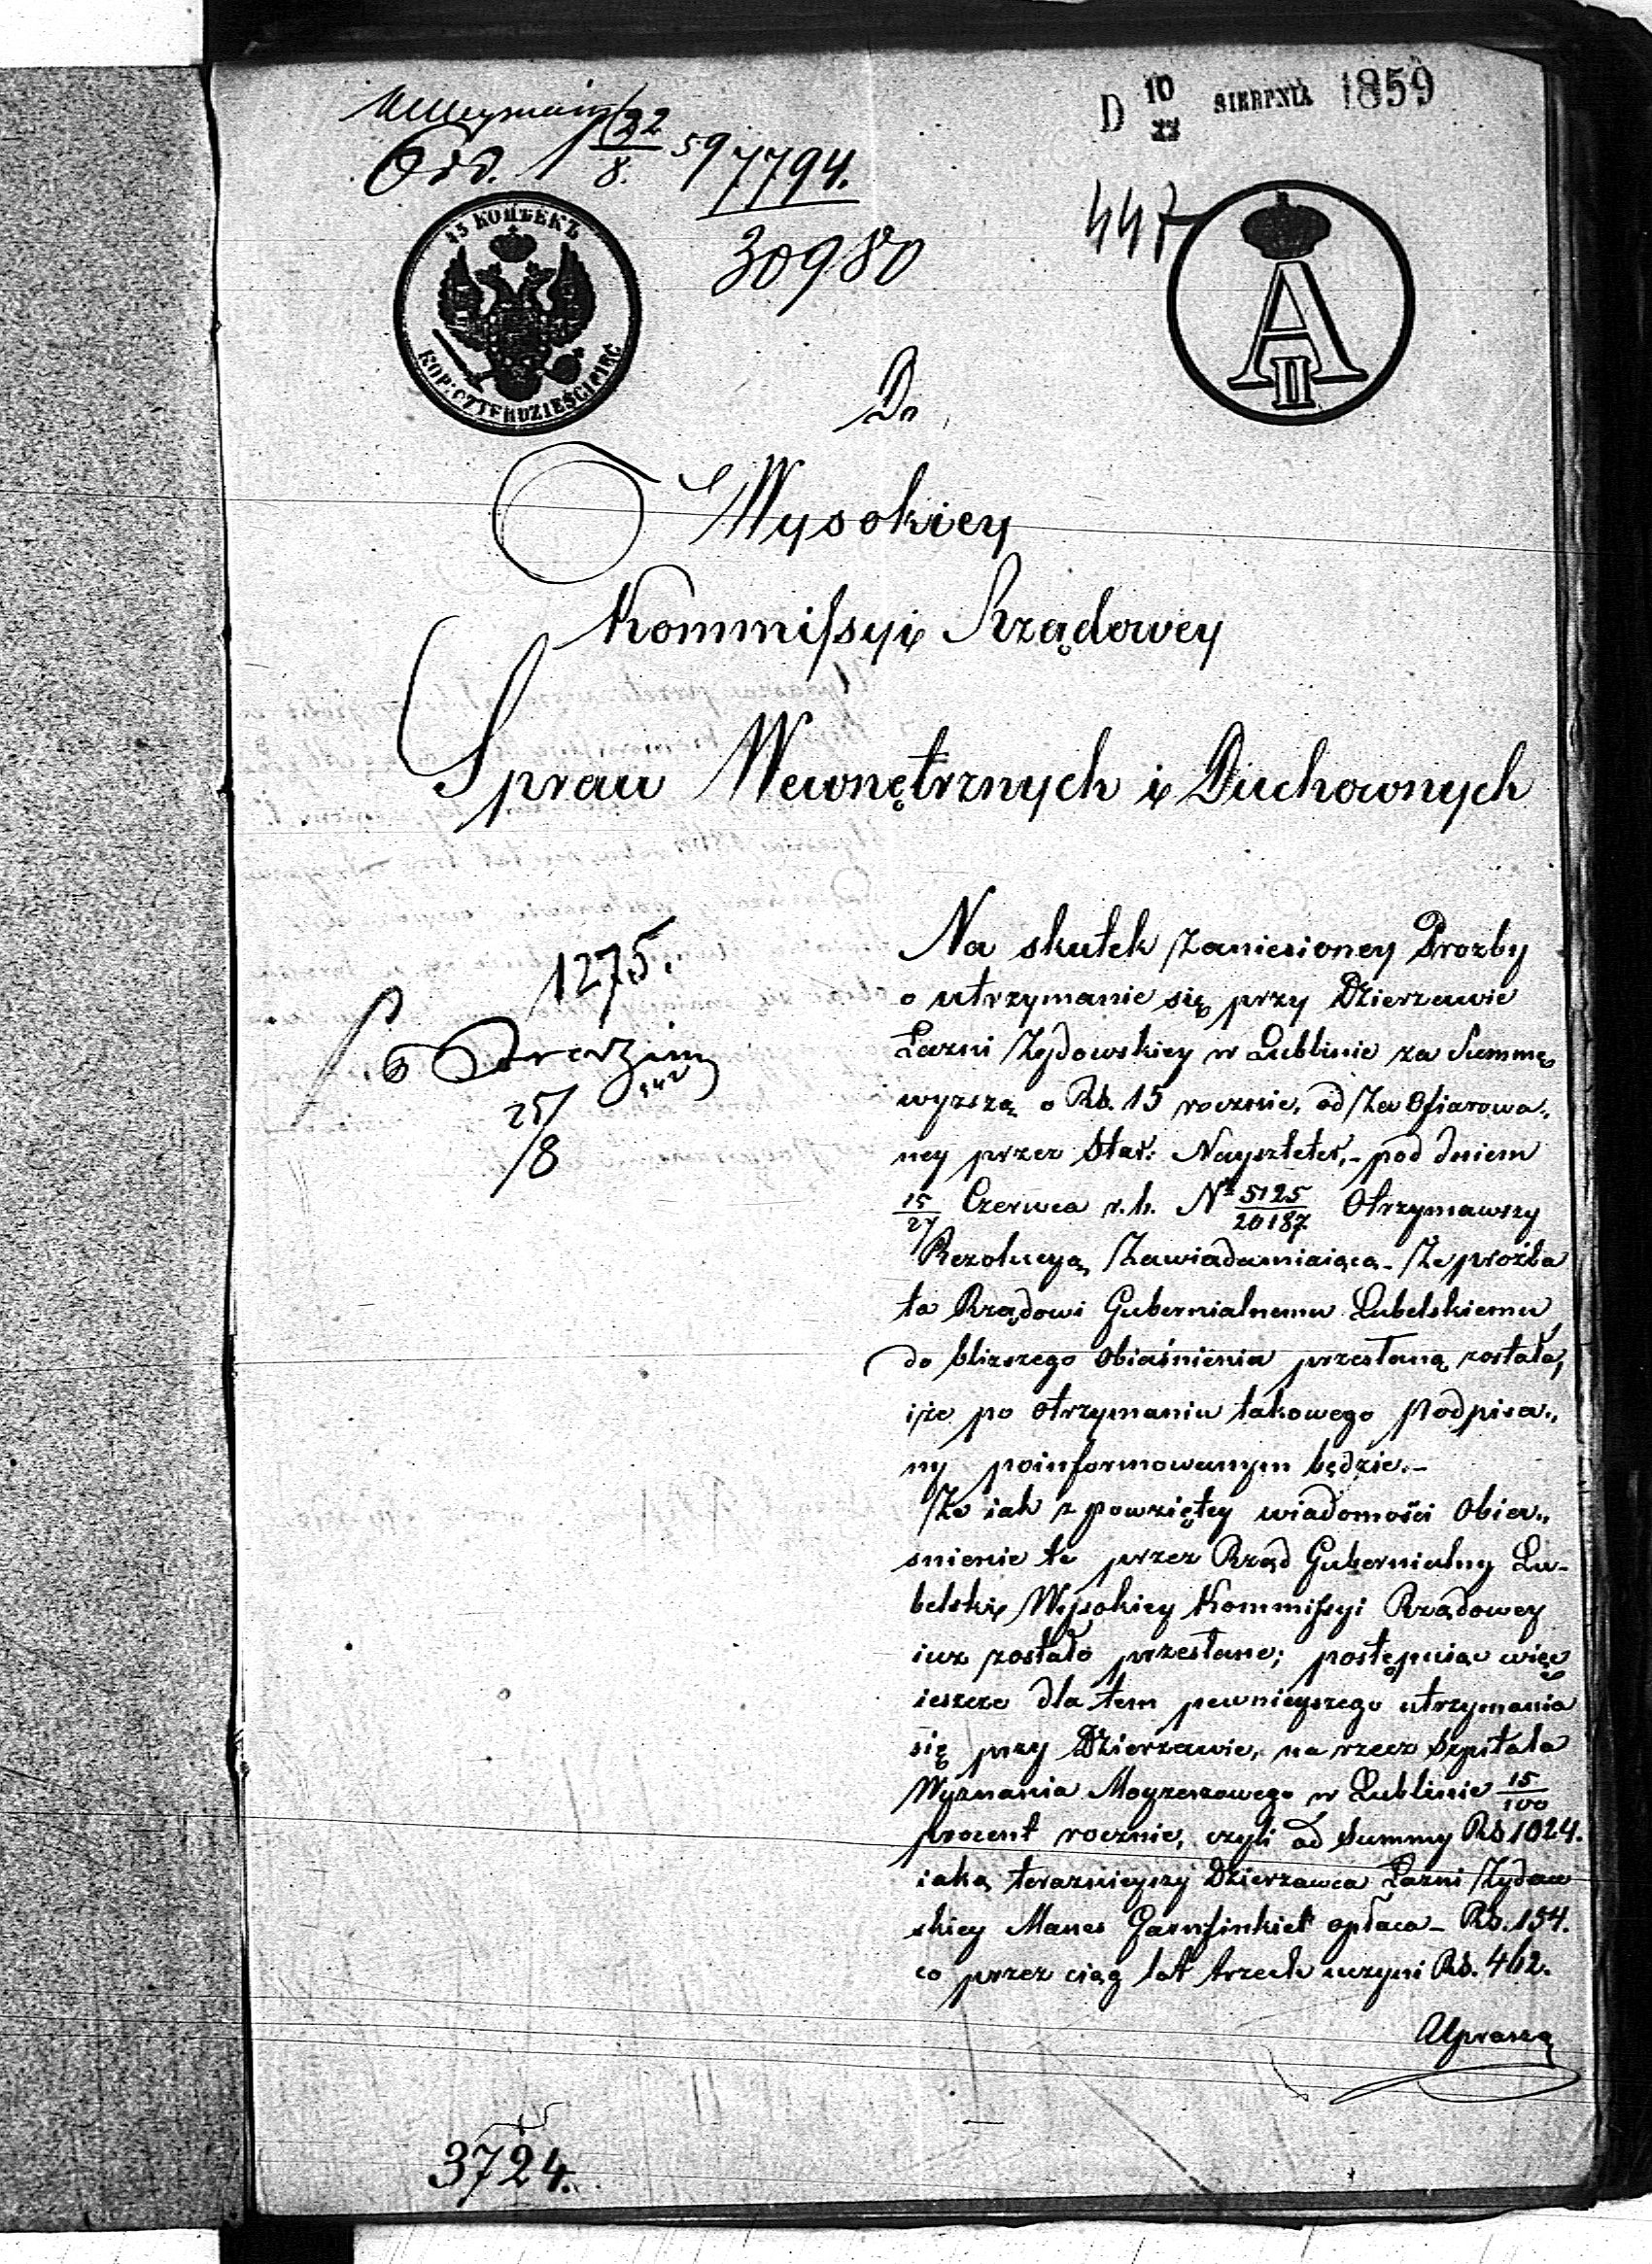 D 10/22 SIERPNIA 1859
Odd. 1 22/8. 59 7794.
30980
447
45 КОПѢЕКЪ
KOP: CZTERDZIEŚCI PIĘĆ
A II
Do
Wysokiey
Kommissyi Rządowey
Spraw Wewnętrznych i Duchownych
1275.
25/8
Na skutek Zaniesioney Prozby
o utrzymanie się przy Dzierzawie
Łazni Żydowskiey w Lublinie za Summę
wyzszą o Rs. 15 rocznie, od Za Ofiarowa„
ney przez Star: Nayszteter, - pod dniem
15/27 Czerwca r. b. No 5125/20187 Otrzymawszy
Rezolucyą Zawiadamiaiącą - Ze prożba
ta Rządowi Gubernialnemu Lubelskiemu
do blizszego Obiaśnienia przesłaną została,
i ze po otrzymaniu takowego Podpisa„
ny poinformowanym będzie. -
Ze iak z powziętey wiadomości Obia„
snienie te przez Rząd Gubernialny Lu-
belski Wysokiey Kommissyi Rządowey
iuz zostało przesłane; postępuiąc więc
ieszcze dla tem pewnieyszego utrzymania
się przy Dzierzawie, na rzecz Szpitala
Wyznania Moyzeszowego w Lublinie 15/100
procent rocznie, czyli od Summy Rs 1024.
iaką teraznieyszy Dzierzawca Łazni Żydow
skiey Manes Garnfinkiel opłaca - Rs. 154.
co przez ciąg lat trzech uczyni Rs. 462.
Upraszą
3724.